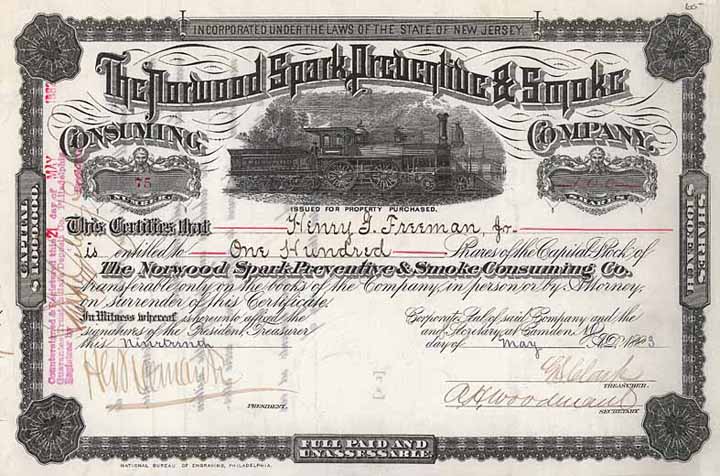 INCORPORATED UNDER THE LAWS OF THE STATE OF NEW JERSEY.
The Norwood Spark Preventive & Smoke
CONSUMING COMPANY.
75
100
ISSUED FOR PROPERTY PURCHASED.
CAPITAL $100,000.
SHARES $100 EACH
This Certifies that Henry G. Freeman, Jr.
is entitled to One Hundred Shares of the Capital Stock of
The Norwood Spark Preventive & Smoke Consuming Co.
transferable only on the books of the Company, in person or by Attorney,
on surrender of this Certificate.
In Witness whereof is hereunto affixed the Corporate Seal of said Company and the
signatures of the President, Treasurer and Secretary, at Camden, N.J.
this Nineteenth day of May A.D. 1883
TREASURER.
A. H. Woodman
PRESIDENT.
SECRETARY
FULL PAID AND
UNASSESSABLE.
NATIONAL BUREAU OF ENGRAVING, PHILADELPHIA.
Countersigned & Registered this 21 day of MAY